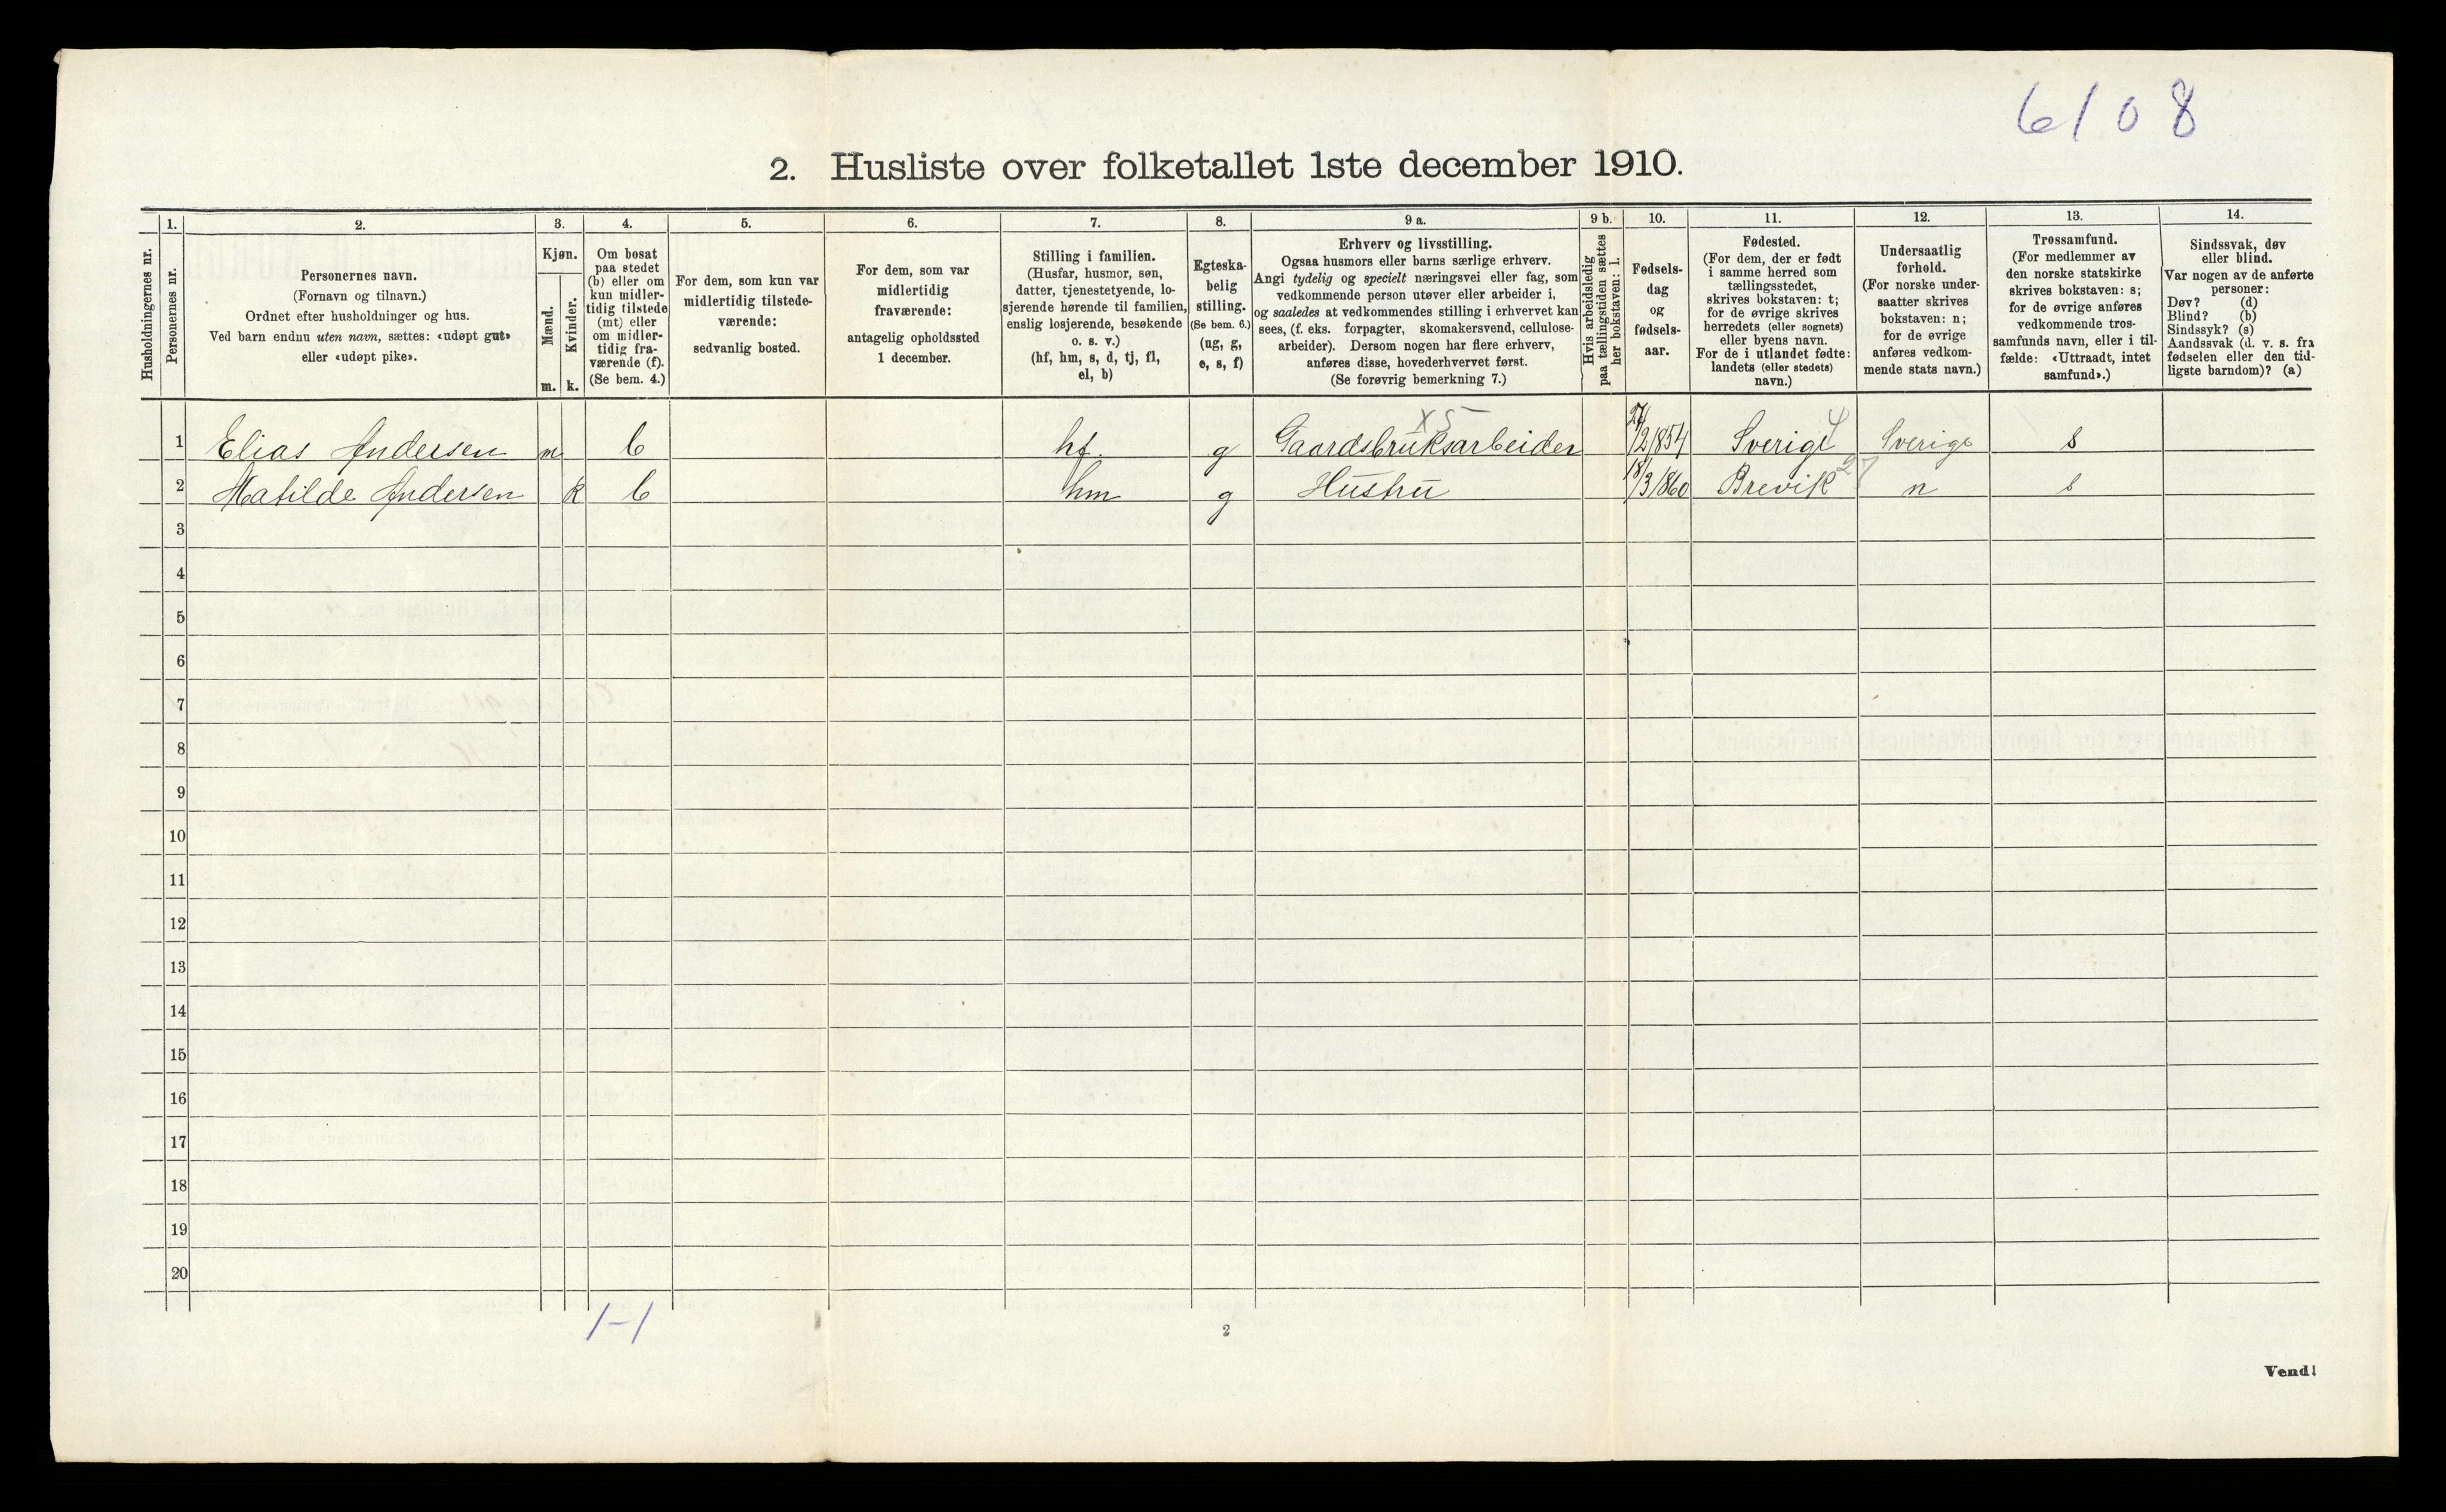 6108
2. Husliste over folketallet 1ste december 1910.
Husholdningernes nr.
1.
Personernes nr.
2.
Personernes navn.
(Fornavn og tilnavn.)
Ordnet efter husholdninger og hus.
Ved barn endnu uten navn, sættes: «udøpt gut»
eller «udøpt pike».
3.
Kjøn.
Mænd.
Kvinder.
m. k.
4.
Om bosat
paa stedet
(b) eller om
kun midler-
tidig tilstede
(mt) eller
om midler-
tidig fra-
værende (f).
(Se bem. 4.)
5.
For dem, som kun var
midlertidig tilstede-
værende:
sedvanlig bosted.
6.
For dem, som var
midlertidig
fraværende:
antagelig opholdssted
1 december.
7.
Stilling i familien.
(Husfar, husmor, søn,
datter, tjenestetyende, lo-
sjerende hørende til familien,
enslig losjerende, besøkende
o. s. v.)
(hf, hm, s, d, tj, fl,
el, b)
8.
Egteska-
belig
stilling.
(Se bem. 6.)
(ug, g,
e, s, f)
9 a.
Erhverv og livsstilling.
Ogsaa husmors eller barns særlige erhverv.
Angi tydelig og specielt næringsvei eller fag, som
vedkommende person utøver eller arbeider i,
og saaledes at vedkommendes stilling i erhvervet kan
sees, (f. eks. forpagter, skomakersvend, cellulose-
arbeider). Dersom nogen har flere erhverv,
anføres disse, hovederhvervet først.
(Se forøvrig bemerkning 7.)
9 b.
Hvis arbeidsledig
paa tællingstiden sættes
her bokstaven: l.
10.
Fødsels-
dag
og
fødsels-
aar.
11.
Fødested.
(For dem, der er født
i samme herred som
tællingsstedet,
skrives bokstaven: t;
for de øvrige skrives
herredets (eller sognets)
eller byens navn.
For de i utlandet fødte:
landets (eller stedets)
navn.)
12.
Undersaatlig
forhold.
(For norske under-
saatter skrives
bokstaven: n;
for de øvrige
anføres vedkom-
mende stats navn.)
13.
Trossamfund.
(For medlemmer av
den norske statskirke
skrives bokstaven: s;
for de øvrige anføres
vedkommende tros-
samfunds navn, eller i til-
fælde: «Uttraadt, intet
samfund».)
14.
Sindssvak, døv
eller blind.
Var nogen av de anførte
personer:
Døv? (d)
Blind? (b)
Sindssyk? (s)
Aandssvak (d. v. s. fra
fødselen eller den tid-
ligste barndom)? (a)
X5 4
1 Elias Andersen m b hf. g Gaardsbruksarbeider 27/2 1854 Sverige Sverige s
27
2 Matilde Andersen k b hm g Hustru 18/3 1860 Brevik n s
3
4
5
6
7
8
9
10
11
12
13
14
15
16
17
18
19
20
1-1
2
Vend!